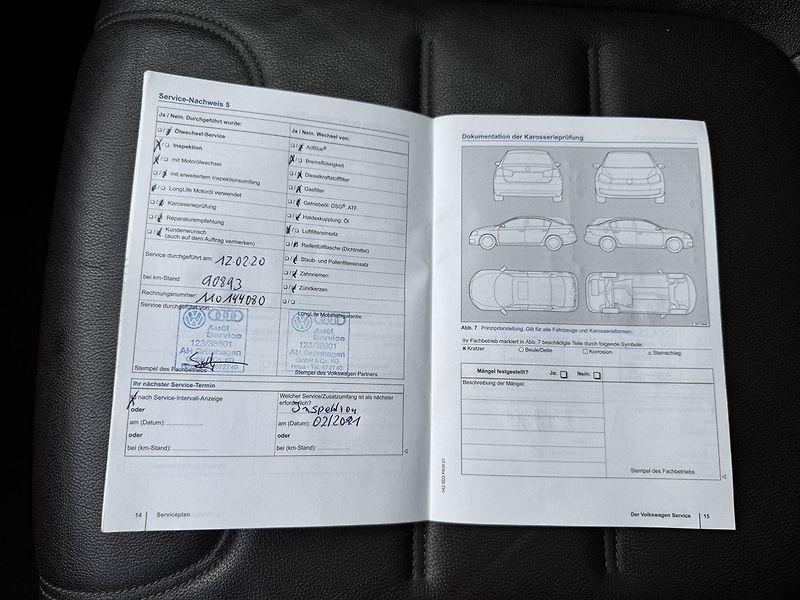 Service-Nachweis 5
Ja / Nein. Durchgeführt wurde:
Ölwechsel-Service
Inspektion
mit Motorölwechsel
mit erweitertem Inspektionsumfang
LongLife Motoröl verwendet
Karosserieprüfung
Reparaturempfehlung
Kundenwunsch
(auch auf dem Auftrag vermerken)
Service durchgeführt am: 12.02.20
bei km-Stand: 90893
Rechnungsnummer: 110144080
Service durchgeführt von
Audi
Service
123/38601
AH Grünhagen
GmbH & Co. KG
Hoya - Tel. 672740
Stempel des Fachbetriebs
Ja / Nein. Wechsel von:
AdBlue®
Bremsflüssigkeit
Dieselkraftstofffilter
Gasfilter
Getriebeöl: DSG®, ATF
Haldexkupplung Öl
Luftfiltereinsatz
Reifenfüllflasche (Dichtmittel)
Staub- und Pollenfiltereinsatz
Zahnriemen
Zündkerzen
LongLife Mobilitätsgarantie:
Audi
Service
123/38601
AH Grünhagen
GmbH & Co. KG
Hoya - Tel. 672740
Stempel des Volkswagen Partners
Ihr nächster Service-Termin
nach Service-Intervall-Anzeige
oder
am (Datum):
oder
bei (km-Stand):
Welcher Service/Zusatzumfang ist als nächster
erforderlich?
Inspektion
am (Datum): 02/2021
oder
bei (km-Stand):
14 Serviceplan
Dokumentation der Karosserieprüfung
Abb. 7 Prinzipdarstellung. Gilt für alle Fahrzeuge und Karosserieformen.
Ihr Fachbetrieb markiert in Abb. 7 beschädigte Teile durch folgende Symbole:
x Kratzer ○ Beule/Delle □ Korrosion △ Steinschlag
Mängel festgestellt? Ja: Nein:
Beschreibung der Mängel:
Stempel des Fachbetriebs
Der Volkswagen Service 15